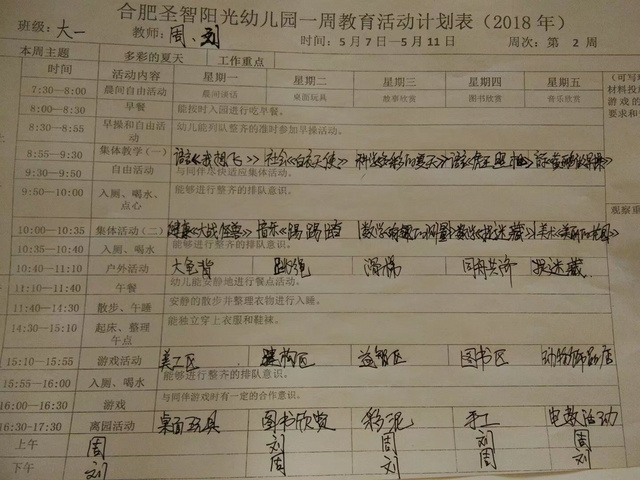 合肥圣智阳光幼儿园一周教育活动计划表（2018 年）
班级：大一 教师：周、刘 时间：5 月 7 日—5 月 11 日 周次：第 2 周
本周主题 多彩的夏天 工作重点
时间 活动内容 星期一 星期二 星期三 星期四 星期五 （可写
7:30—8:00 晨间自由活动 晨间谈话 桌面玩具 故事欣赏 图书欣赏 音乐欣赏 材料投
8:00—8:30 早餐 能按时入园进行吃早餐。 游戏的
8:30—8:55 早操和自由活动 幼儿能列队整齐的准时参加早操活动。 要求和
8:55—9:30 集体教学（一） 语言《我想飞》 社会《白衣天使》 科学 语言
9:30—9:50 自由活动 与同伴尽快适应集体活动。
9:50—10:00 入厕、喝水、点心 能够进行整齐的排队意识。
观察重
10:00—10:35 集体活动（二） 健康《大战怪兽》 音乐《踢踢踏》 数学 数学《捉迷藏》 美术
10:35—10:40 入厕、喝水 能够进行整齐的排队意识。
10:40—11:10 户外活动 大龟背 跳绳 滑梯 同舟共济 捉迷藏
11:10—11:40 午餐 幼儿能安静地进行餐点活动。
11:40—14:30 散步、午睡 安静的散步并整理衣物进行入睡。
14:30—15:10 起床、整理 午点 能独立穿上衣服和鞋袜。
15:10—15:55 游戏活动 美工区 建构区 益智区 图书区 动物饰品店
15:55—16:00 入厕、喝水 能够进行整齐的排队意识。
16:00—16:30 游戏 与同伴游戏时有一定的合作意识。
16:30—17:30 离园活动 桌面玩具 图书欣赏 彩泥 手工 电教活动
上午 周 刘 周 刘 周
下午 刘 周 刘 周 刘